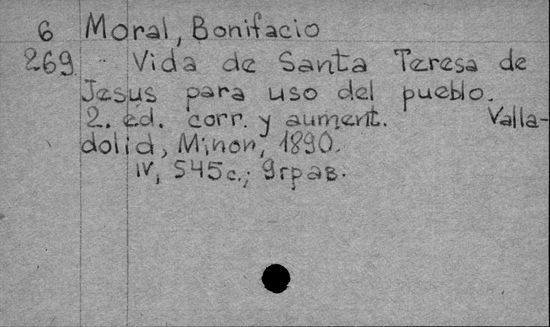 6 Moral, Bonifacio
269 Vida de Santa Teresa de
Jesus para uso del pueblo.
2. ed. corr. y aument. Valla-
dolid, Minon, 1890.
IV, 545c.; 9грав.